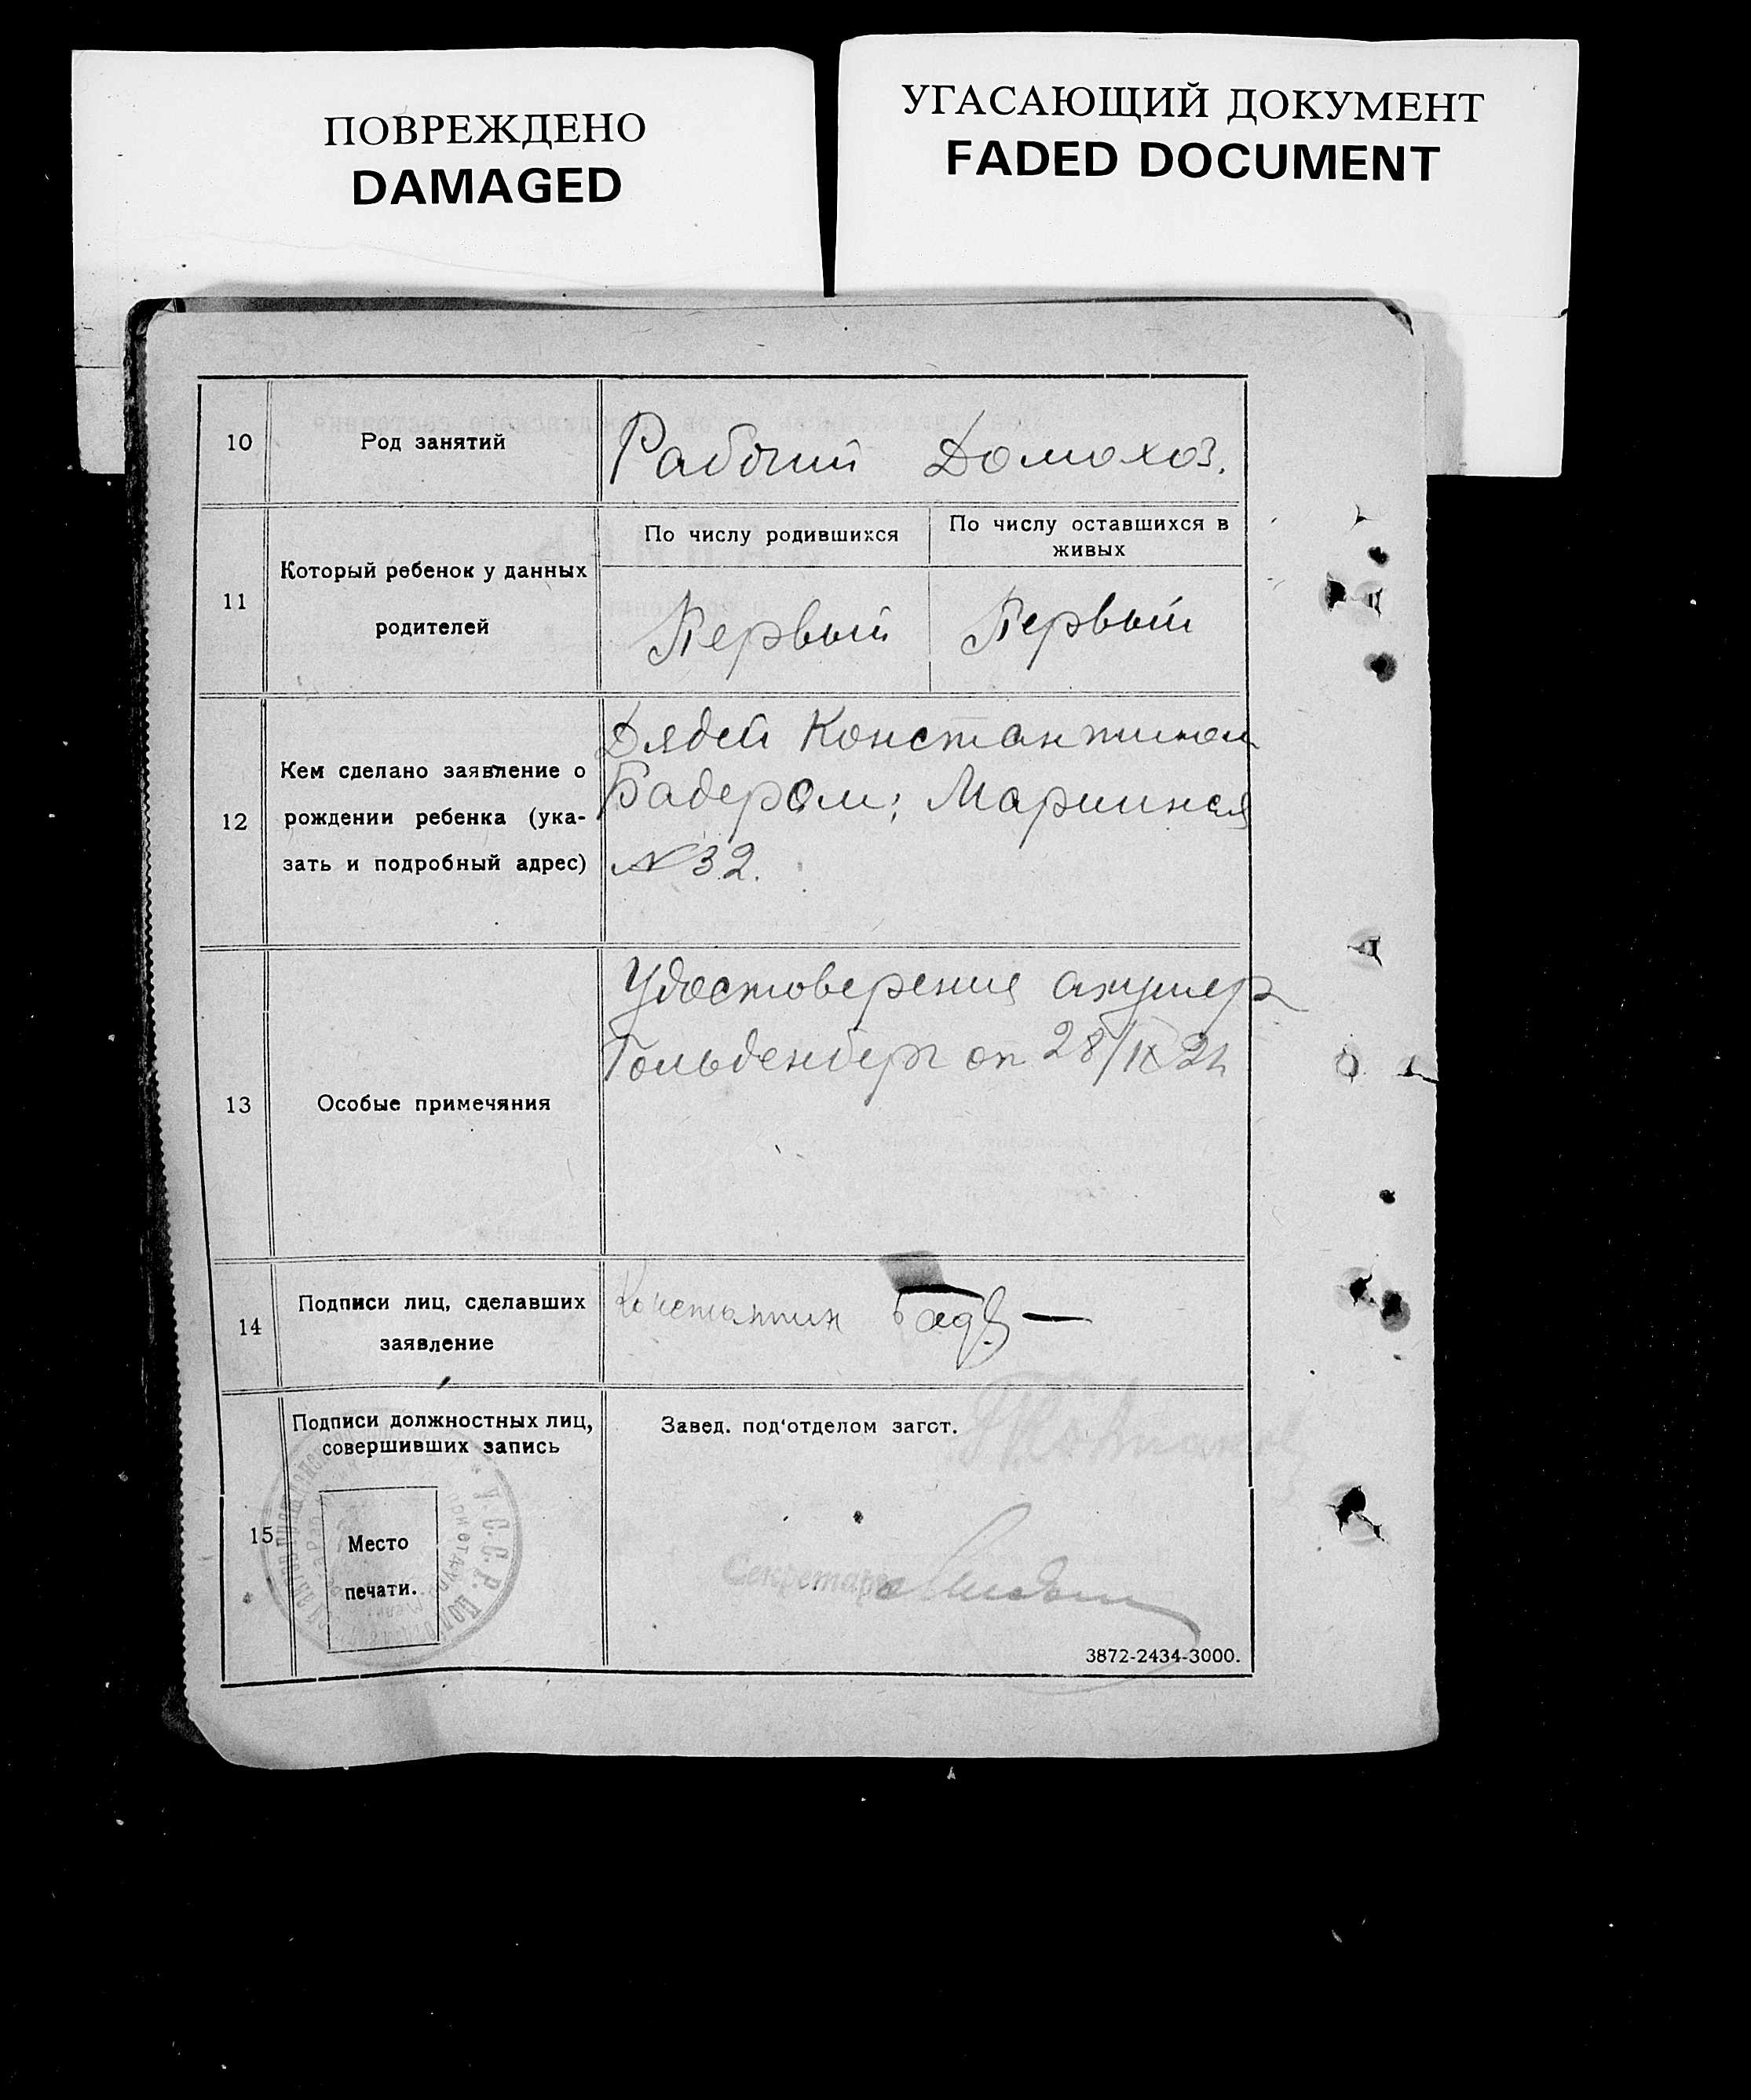 ПОВРЕЖДЕНО
DAMAGED
УГАСАЮЩИЙ ДОКУМЕНТ
FADED DOCUMENT
10
Род занятий
Рабочий Домохоз.
11
Который ребенок у данных
родителей
По числу родившихся
Первый
По числу оставшихся в
живых
Первый
12
Кем сделано заявление о
рождении ребенка (ука-
зать и подробный адрес)
Дядей Константином
Бадером; Мариинская
№ 32.
13
Особые примечяния
Удостоверение акушер
Гольденберг от 28/IX 24
14
Подписи лиц, сделавших
заявление
Константин Бадер
15
Подписи должностных лиц,
совершивших запись
Место
печати.
У.С.С.Р.
Завед. под'отделом загст.
Секретарь
3872-2434-3000.